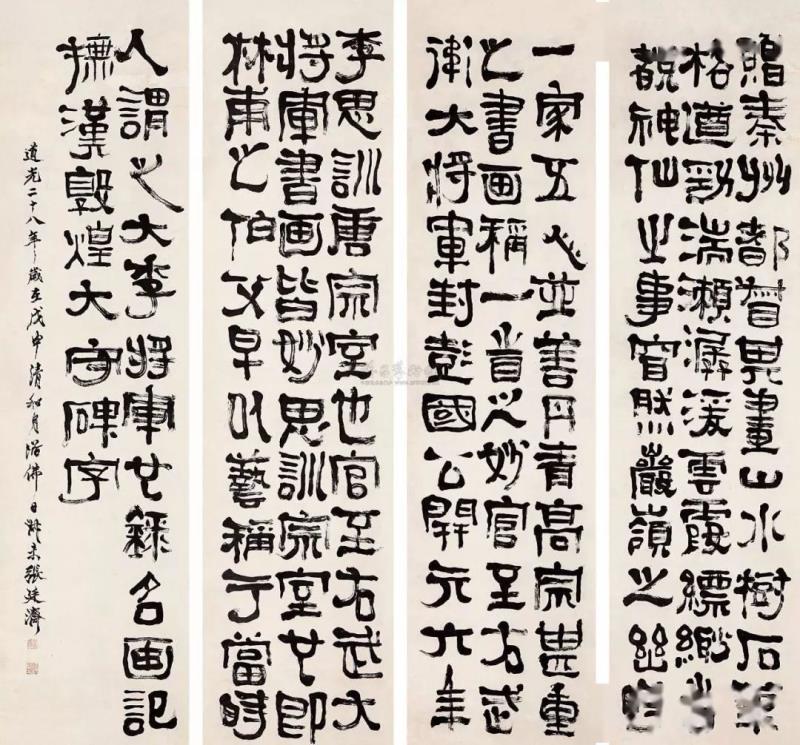 贈秦州都督其畫山水樹石筆
格遒勁湍瀨潺湲雲霞縹緲旹
覩神仙之事窅然巖嶺之幽時
一家五人並善丹青高宗甚重
之書画稱一旹之妙官至右武
衛大将軍封彭國公開元六年
李思訓唐宗室也官至右武大
将軍書画皆妙思訓宗室也即
林甫之伯父早以藝稱于當時
人謂之大李将軍也錄名画記
撫漢敦煌大守碑字
道光二十八年歲在戊申清和月浴佛日叔未張廷濟